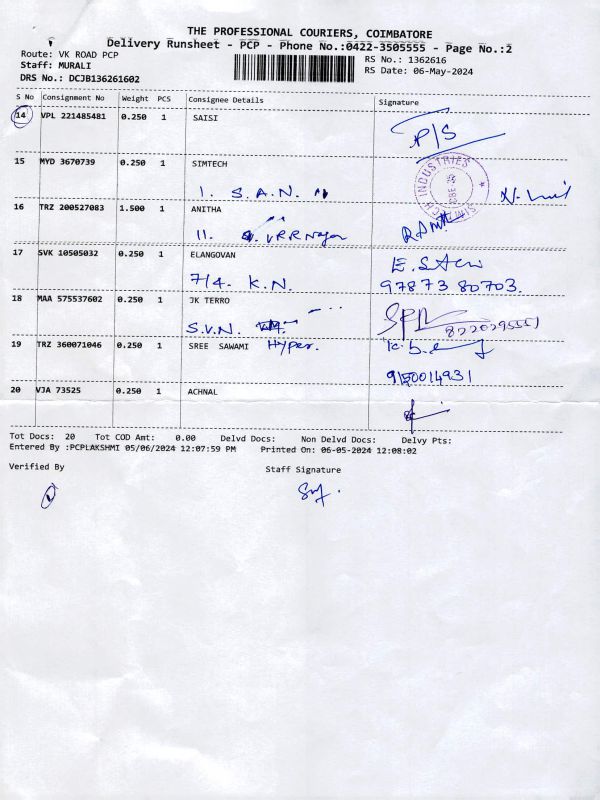 THE PROFESSIONAL COURIERS, COIMBATORE
Delivery Runsheet - PCP - Phone No.:0422-3505555 - Page No.:2
Route: VK ROAD PCP
Staff: MURALI
DRS No.: DCJB136261602
RS No.: 1362616
RS Date: 06-May-2024
S No Consignment No Weight PCS Consignee Details Signature
14 VPL 221485481 0.250 1 SAISI
P/S
15 MYD 3670739 0.250 1 SIMTECH
1. S.A.N.
SIMTECH INDUSTRIES
16 TRZ 200527083 1.500 1 ANITHA
11. VRR Nagar
17 SVK 10505032 0.250 1 ELANGOVAN
7/4. K.N.
97873 80703.
18 MAA 575537602 0.250 1 JK TERRO
S.V.N.
19 TRZ 360071046 0.250 1 SREE SAWAMI Hyper.
9150014931
20 VJA 73525 0.250 1 ACHNAL
Tot Docs: 20 Tot COD Amt: 0.00 Delvd Docs: Non Delvd Docs: Delvy Pts:
Entered By :PCPLAKSHMI 05/06/2024 12:07:59 PM Printed On: 06-05-2024 12:08:02
Verified By Staff Signature